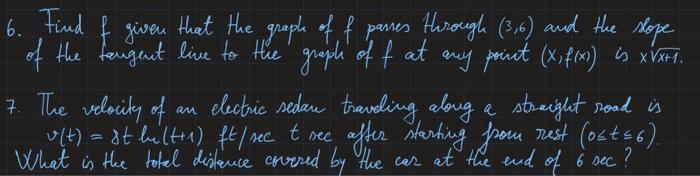 6. Find f given that the graph of f passes through (3,6) and the slope
of the tangent line to the graph of f at any point (x, f(x)) is x√x+1.
7. The velocity of an electric sedan traveling along a straight road is
v(t) = 8t ln(t+1) ft/sec t sec after starting from rest (0≤t≤6).
What is the total distance covered by the car at the end of 6 sec?